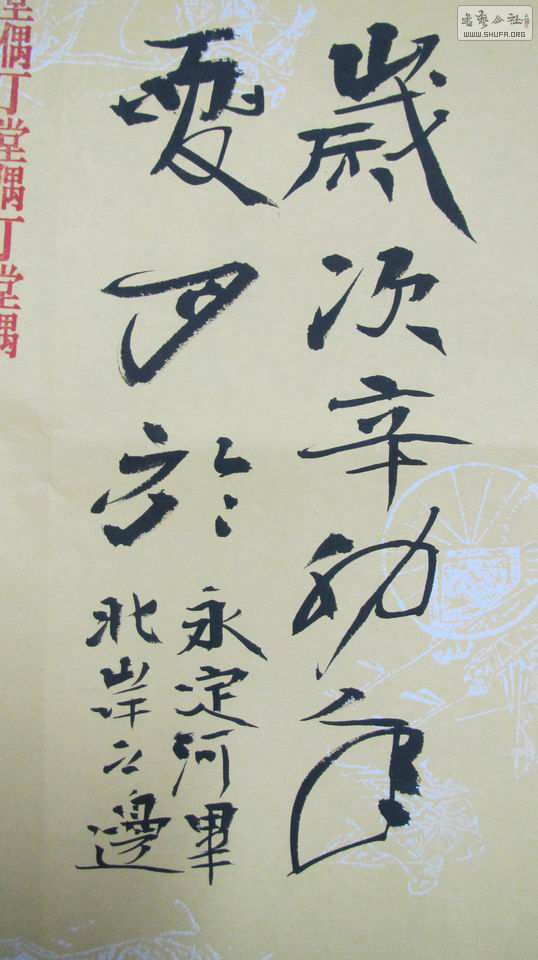 歲次辛卯年
夏月於
永定河畔
北岸之邊
堂偶丁堂偶丁堂偶
書藝公社
WWW.SHUFA.ORG